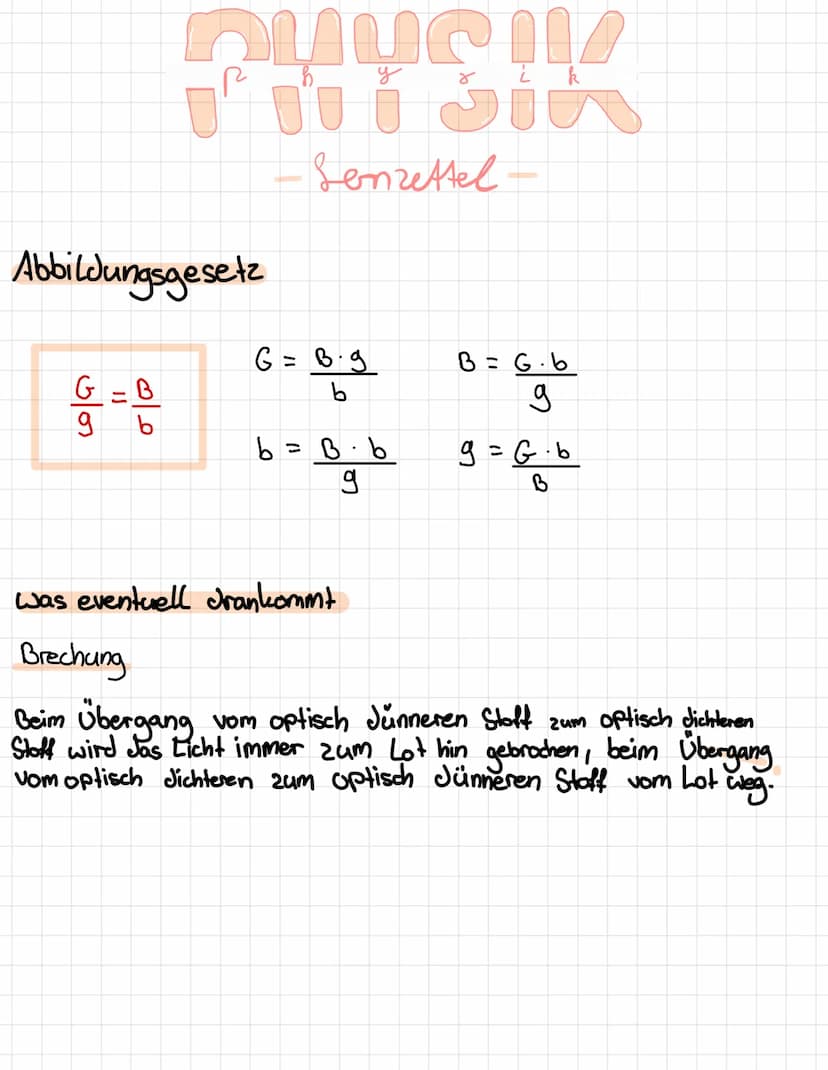 PHYSIK
physik
- Lernzettel -
Abbildungsgesetz
G/g = B/b
G = B·g/b
B = G·b/g
b = B·b/g
g = G·b/B
Was eventuell drankommt
Brechung
Beim Übergang vom optisch dünneren Stoff zum optisch dichteren
Stoff wird das Licht immer zum Lot hin gebrochen, beim Übergang
vom optisch dichteren zum optisch dünneren Stoff vom Lot weg.